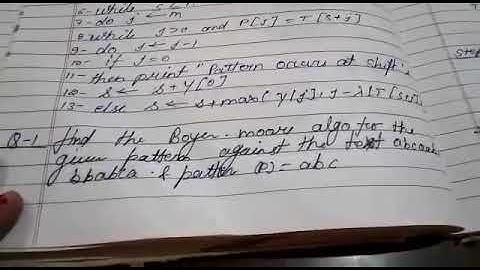 6- while s ≤ n-m
7- do j ← m
8 while j>0 and P[j] = T[s+j]
9- do j ← j-1
10- if j=0
11- then print "Pattern occurs at shift" s
12- s ← s+γ[0]
13- else s ← s+max(γ[j], j-λ[T[s+j]
Q-1 find the Boyer-moore algo for the
given pattern against the text abcaab
bbabca & pattern (P) = abc